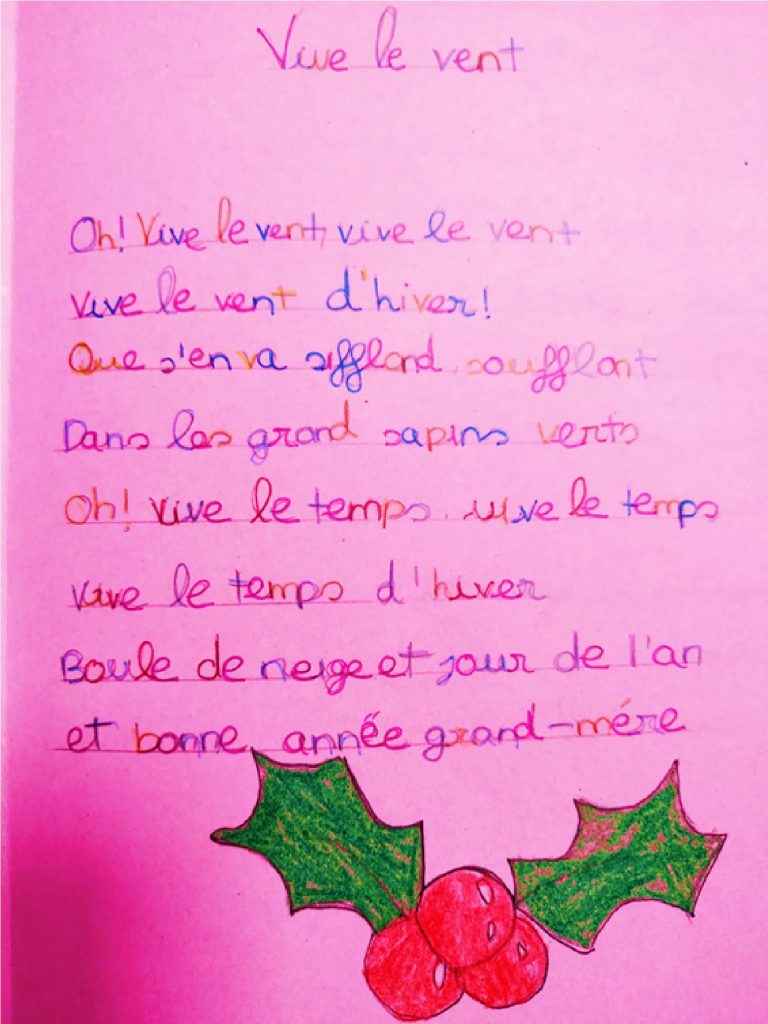 Vive le vent
Oh! Vive le vent, vive le vent
vive le vent d'hiver!
Que s'en va siffland, soufflant
Dans les grand sapins verts
Oh! vive le temps, vive le temps
vive le temps d'hiver
Boule de neige et jour de l'an
et bonne année grand-mére